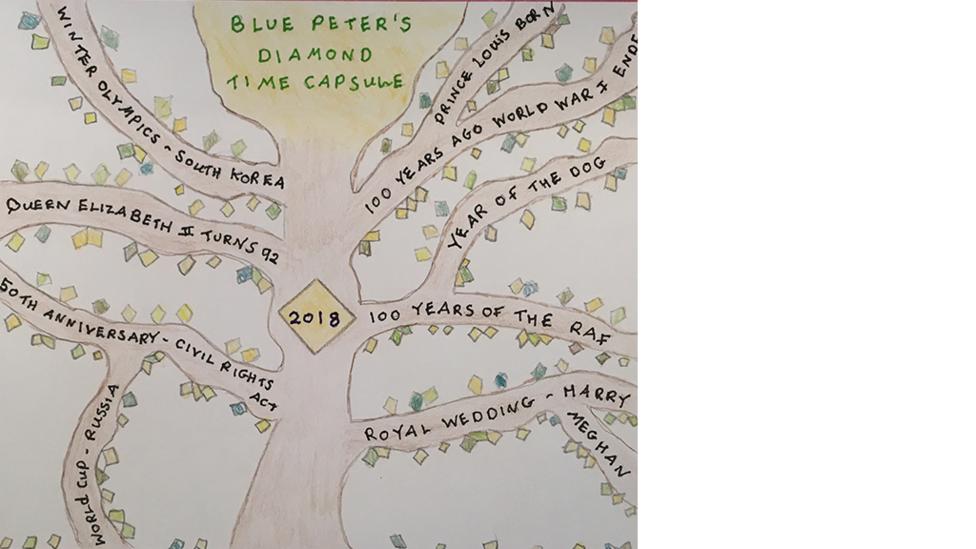 BLUE PETER'S
DIAMOND
TIME CAPSULE
WINTER OLYMPICS - SOUTH KOREA
QUEEN ELIZABETH II TURNS 92
50TH ANNIVERSARY - CIVIL RIGHTS
ACT
WORLD CUP - RUSSIA
2018
PRINCE LOUIS BORN
100 YEARS AGO WORLD WAR I ENDE
YEAR OF THE DOG
100 YEARS OF THE RAF
ROYAL WEDDING - HARRY
MEGHAN